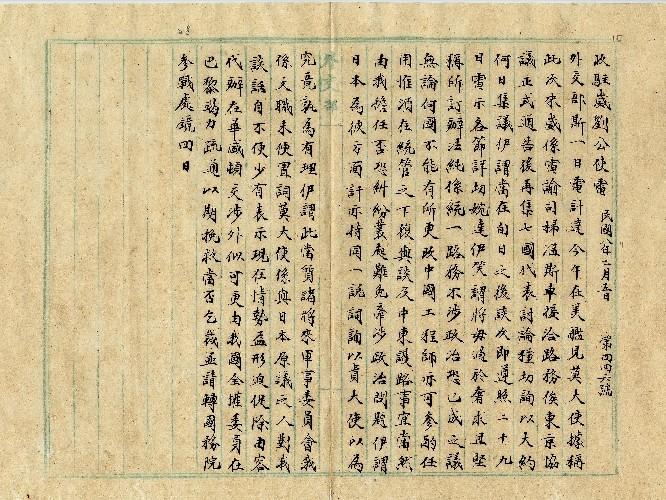 收駐崴劉公使電 民國八年二月五日 第四四六號
外交部斯一日電計達今午在美艦見莫大使據稱
此次來崴係電諭司梯溫斯車接洽路務俟東京協
議正式通告後再集七國代表討論種切詢以大約
何日集議伊謂當在旬日之後談次即遵照二十九
日電示各節詳切婉達伊笑謂將毋過於奢求且堅
稱所訂辦法純係統一路務不涉政治恐已成之議
無論何國不能有所更改中國工程師亦可參酌任
用惟須在統管之下復與談及中東護路事宜當然
由我擔任否恐糾紛叢起難免牽涉政治問題伊謂
日本為彼方面計亦持同一說詞詢以貴大使以為
究竟孰為有理伊謂此當質諸將來軍事委員會我
係文職未便置詞莫大使係與日本原議之人對我
談話自不便少有表示現在情勢益形迫促除由容
代辦在華盛頓交涉外似可更由我國全權委員在
巴黎竭力疏通以期挽救當否乞裁並請轉國務院
參戰處鏡四日
外交部